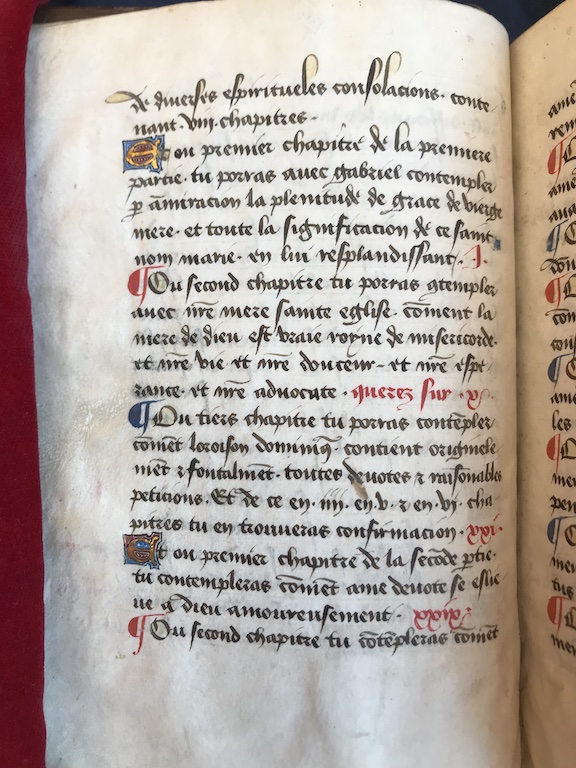 de diuerses espirituelles consolacions · conte
nant · viij · chapitres ·
Et ou premier chapitre de la premiere
partie · tu porras auec gabriel contempler
p̲ am̃iracion la plenitude de grace de vierge
mere · et toute la signification de ce saint
nom marie · en lui resplandissant · j ·
¶ Ou second chapitre tu porras ꝯtempler
auec nr̃e mere sainte eglise · cõment la
mere de dieu est vraie royne de misericorde ·
et nr̃e vie et nr̃e doulceur · et nr̃e espe
rance · et nr̃e aduocate · querez sur · x ·
¶ Ou tiers chapitre tu porras contẽpler
cõmẽt loroison dominiq̃ · contient originele
mẽt ⁊ fontalmẽt · toutes deuotes ⁊ raisõnables
peticions · Et de ce en · iiij · en · v · ⁊ en · vi · cha
pitres tu en trouueras confirmacion · xxi ·
Et ou premier chapitre de la secõde p̲tie ·
tu contempleras cõmẽt ame deuote se eslie
ue a dieu amoureusement · xxix ·
¶ Ou second chapitre tu cõtẽpleras cõmẽt